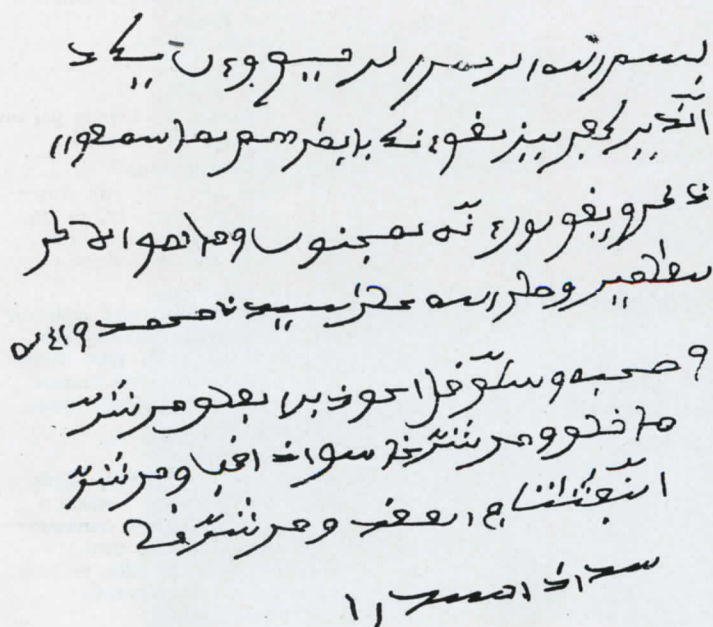 بسم الله الرحمن الرحيم وإن يكاد
الذين كفروا ليزلقونك بابصرهم لما سمعوا
الذكر ويقولون إنه لمجنون وما هو الا ذكر
للعلمين وصلى الله على سيدنا محمد وءاله
وصحبه وسلم قل اعوذ برب الفلق من شر
ما خلق ومن شر غاسق اذا وقب ومن شر
النفثت في العقد ومن شر حا
سد اذا حسد